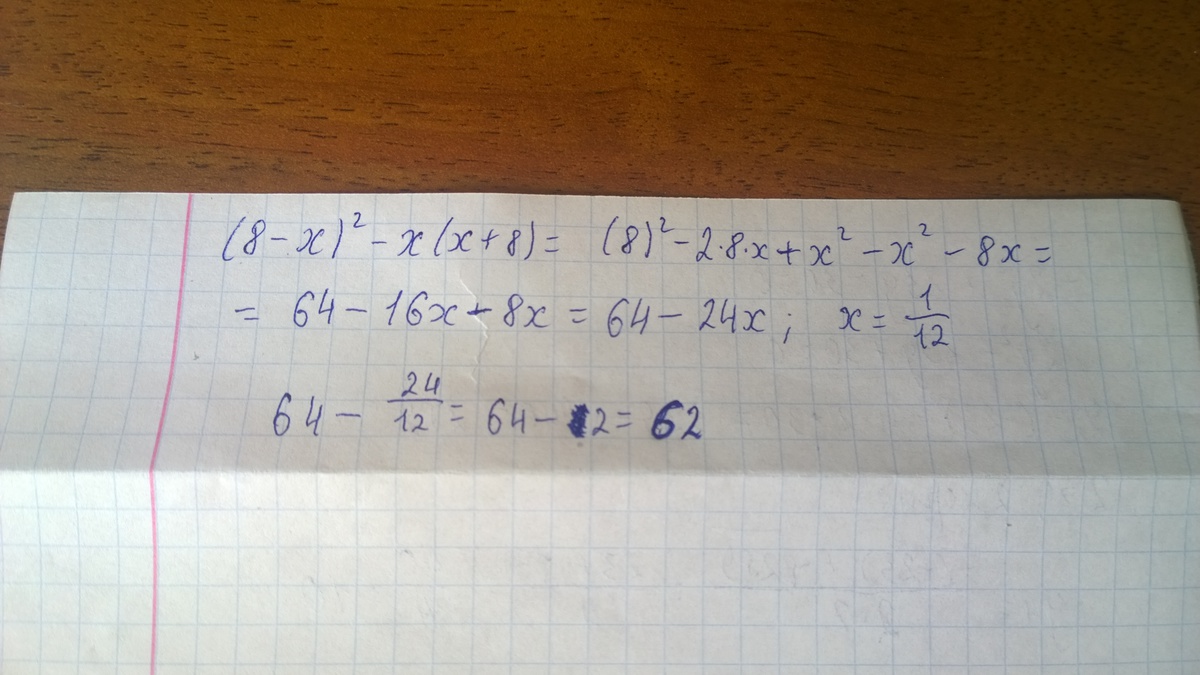 (8-x)² - x(x+8) = (8)² - 2·8·x + x² - x² - 8x =
= 64 - 16x - 8x = 64 - 24x; x = 1/12
64 - 24/12 = 64 - 2 = 62